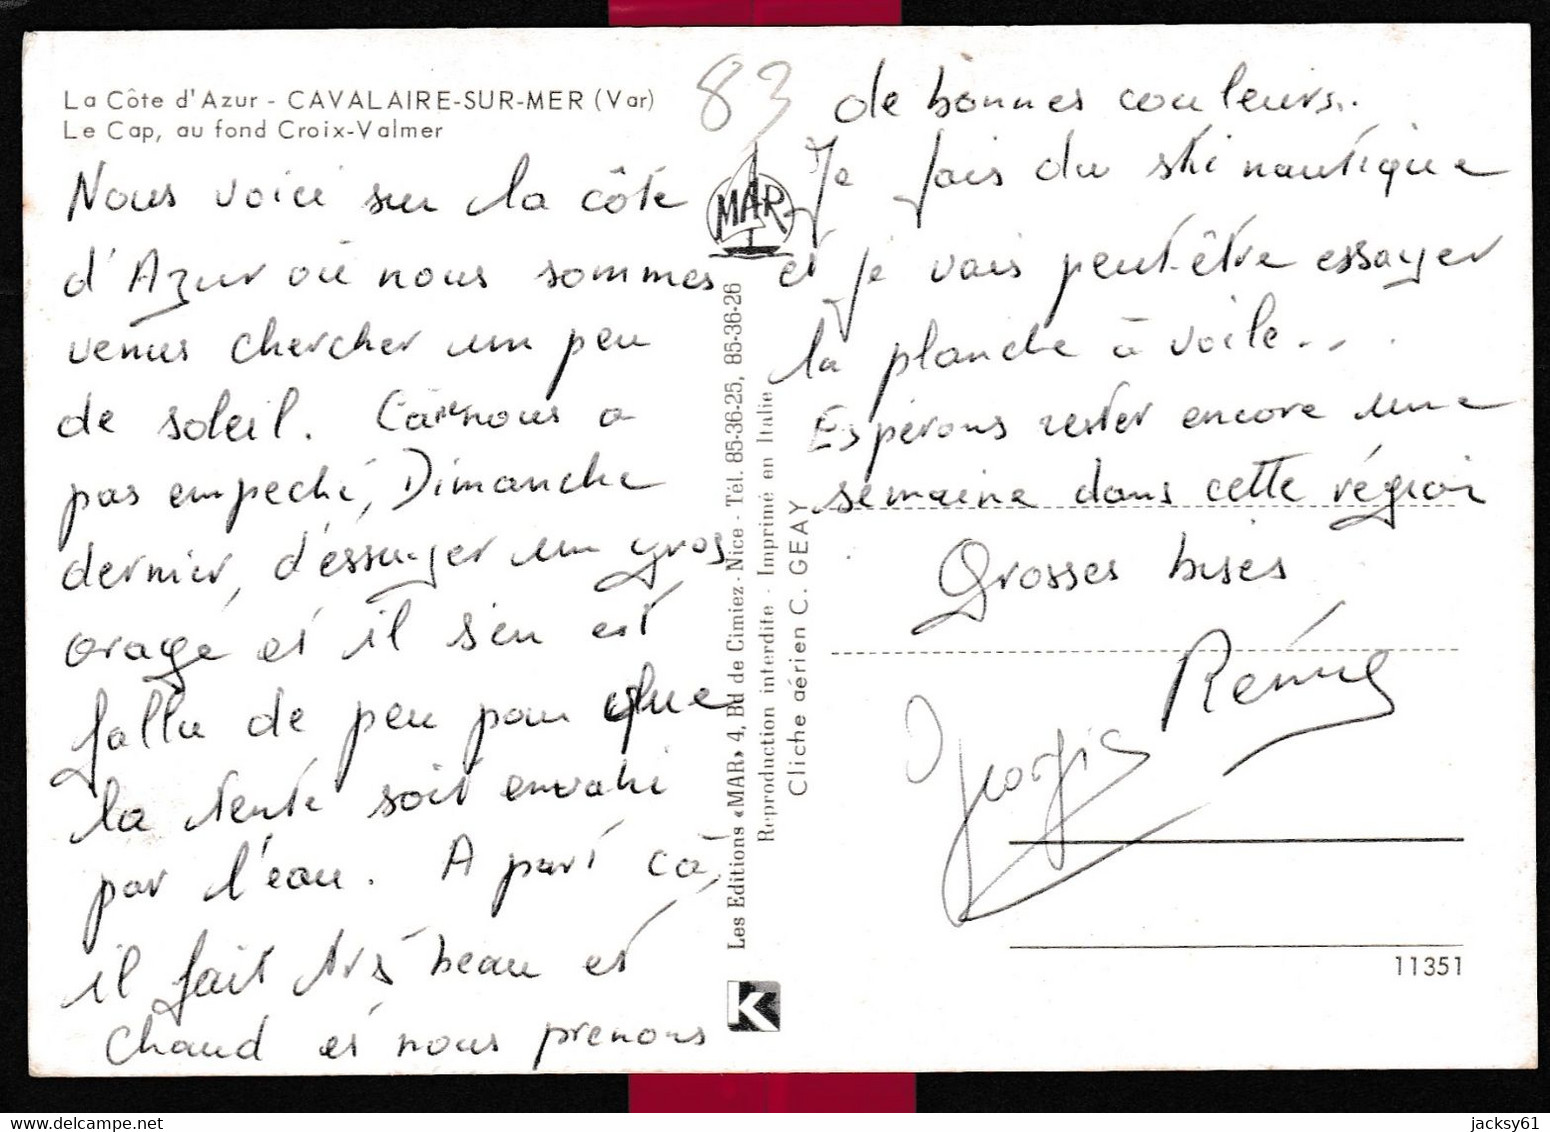 La Côte d'Azur - CAVALAIRE-SUR-MER (Var)
Le Cap, au fond Croix-Valmer
Nous voici sur la côte
d'Azur où nous sommes
venus chercher un peu
de soleil. Ca nous a
pas empeché, Dimanche
dernier, d'éssuyer un gros
orage et il s'en est
fallu de peu pour que
la tente soit envahi
par l'eau. A part cà,
il fait très beau et
chaud et nous prenons
83
MAR
Les Editions «MAR» 4, Bd de Cimiez - Nice - Tél. 85-36-25, 85-36-26
Reproduction interdite - Imprimé en Italie
Cliche aérien C. GEAY
K
de bonnes couleurs..
Je fais du ski nautique
et je vais peut-être essayer
la planche à voile...
Espérons rester encore une
semaine dans cette région
Grosses bises
Rémy
Georgie
11351
jacksy61